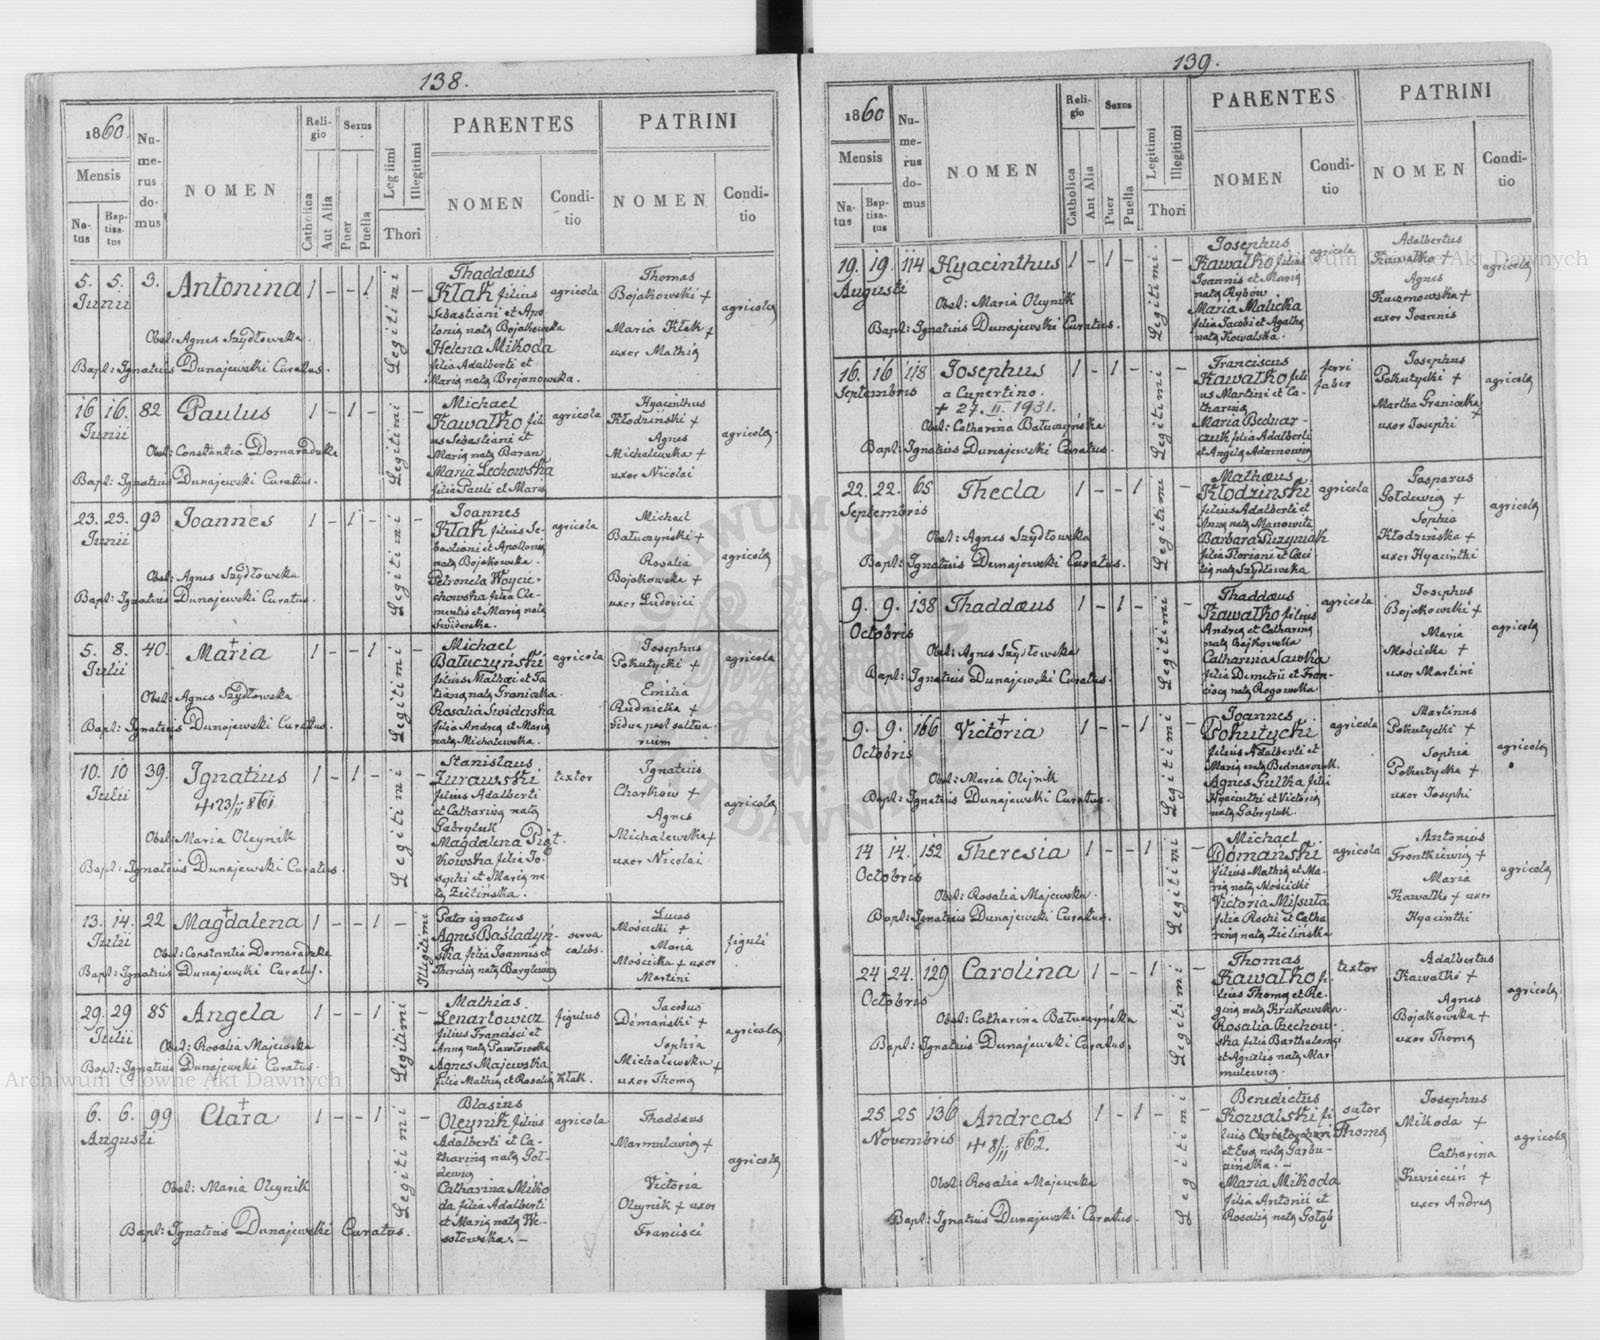 138.
1860
Mensis
Natus
Baptisatus
Numerus domus
NOMEN
Religio
Catholica
Aut Alia
Sexus
Puer
Puella
Legitimi
Illegitimi
Thori
PARENTES
NOMEN
Conditio
PATRINI
NOMEN
Conditio
5. 5. 3. Antonina 1 - - 1 Legitimi -
Junii
Obst: Agnes Szydłowska.
Bapt: Ignatius Dunajewski Curatus.
Thaddæus
Kłak filius
Sebastiani et Apo
lonia nata Bojakowska
Helena Mikoda
filia Adalberti et
Maria nata Brojanowska.
agricola
Thomas
Bojakowski +
Maria Kłak +
uxor Mathiæ
agricolæ
16 16. 82 Paulus 1 - 1 - Legitimi -
Junii
Obst: Constantia Domaradzka
Bapt: Ignatius Dunajewski Curatus.
Michael
Kawałko fili
us Sebastiani et
Maria nata Baran
Maria Lechowska
filia Pauli et Maria
agricola
Hyacinthus
Kłodziński +
Agnes
Michalewska +
uxor Nicolai
agricolæ
23. 23. 93 Joannes 1 - 1 - Legitimi -
Junii
Obst: Agnes Szydłowska
Bapt: Ignatius Dunajewski Curatus.
Joannes
Kłak filius Se-
bastiani et Apollonia
nata Bojakowska.
Petronela Woycie-
chowska filia Cle-
mentis et Maria nata
Swiderska.
agricola
Michael
Batuczyński +
Rosalia
Bojakowska +
uxor Ludovici
agricolæ
5. 8. 40. Maria 1 - - 1 Legitimi -
Julii
Obst: Agnes Szydłowska
Bapt: Ignatius Dunajewski Curatus.
Michael
Batuczyński
filius Mathæi et Ta
tiana nata Graniatka.
Rosalia Swiderska
filia Andreæ et Maria
nata Michalewska.
agricola
Josephus
Pokutycki +
Emilia
Rudnicka +
vidua post saltua-
rium
agricola
10. 10 39. Ignatius 1 - 1 - Legitimi -
Julii
+ 23/II 861.
Obst: Maria Oleynik
Bapt: Ignatius Dunajewski Curatus.
Stanislaus
Zurawski
filius Adalberti
et Catharina nata
Gabryluk
Magdalena Piąt-
kowska filia Jo-
sephi et Maria na-
ta Zielińska.
textor
Ignatius
Charkow +
Agnes
Michalewska +
uxor Nicolai
agricolæ
13. 14. 22 Magdalena 1 - - 1 - Illegitimi
Julii
Obst: Constantia Domaradzka
Bapt: Ignatius Dunajewski Curatus.
Pater ignotus
Agnes Baśladyń-
ska filia Joannis et
Theresia nata Barylewicz
serva
caelebs.
Lucas
Mościcki +
Maria
Mościcka + uxor
Martini
figuli
29. 29 85 Angela 1 - - 1 Legitimi -
Julii
Obst: Rosalia Majewska
Bapt: Ignatius Dunajewski Curatus.
Mathias
Lenartowicz
filius Francisci et
Anna nata Pawłowska
Agnes Majewska
filia Mathiæ et Rosalia Kłak.
figulus
Jacobus
Domański +
Sophia
Michalewska +
uxor Thomæ
agricolæ
6. 6. 99 Clara 1 - - 1 Legitimi -
Augusti
Obst: Maria Oleynik
Bapt: Ignatius Dunajewski Curatus.
Blasius
Oleynik filius
Adalberti et Ca-
tharina nata Goł-
dewicz
Catharina Miko
da filia Adalberti
et Maria nata We-
sołowska. -
agricola
Thaddæus
Marmulewicz +
Victoria
Oleynik + uxor
Francisci
agricolæ
139.
1860
Mensis
Natus
Baptisatus
Numerus domus
NOMEN
Religio
Catholica
Aut Alia
Sexus
Puer
Puella
Legitimi
Illegitimi
Thori
PARENTES
NOMEN
Conditio
PATRINI
NOMEN
Conditio
19. 19. 114 Hyacinthus 1 - 1 - Legitimi. -
Augusti
Obst: Maria Oleynik
Bapt: Ignatius Dunajewski Curatus.
Josephus
Kawałko filius
Joannis et Maria
nata Rybów
Maria Malicka
filia Jacobi et Agatha
nata Kowalska.
agricola
Adalbertus
Kawałko +
Agnes
+
uxor Joannis
agricolæ
16. 16 118 Josephus 1 - 1 - Legitimi -
Septembris
a Cupertino.
+ 27. II. 1931.
Obst: Catharina Batuczyńska
Bapt: Ignatius Dunajewski Curatus.
Franciscus
Kawałko fili
us Martini et Ca-
tharina
Maria Bednar-
czuk filia Adalberti
et Angela Adamowicz
ferri
faber
Josephus
Pokutycki +
Martha Graniatka
+
uxor Josephi
agricolæ
22. 22. 65 Thecla 1 - - 1 Legitimi -
Septembris
Obst: Agnes Szydłowska
Bapt: Ignatius Dunajewski Curatus.
Mathæus
Kłodzinski
filius Adalberti et
Anna nata Manowita
Barbara Puzyniak
filia Floriani et Caci
lia nata Szydłowska
agricola
Gasparus
Gołdewicz +
Sophia
Kłodzińska +
uxor Hyacinthi
agricolæ
9. 9. 138 Thaddæus 1 - 1 - Legitimi -
Octobris
Obst: Agnes Szydłowska
Bapt: Ignatius Dunajewski Curatus.
Thaddæus
Kawałko filius
Andreæ et Catharina
nata Gajkowska
Catharina Sawka
filia Demetrii et Fran-
cisca nata Rogowska
agricola
Josephus
Bojakowski +
Maria
Mościcka +
uxor Martini
agricolæ
9. 9. 166 Victoria 1 - - 1 Legitimi -
Octobris
Obst: Maria Olejnik
Bapt: Ignatius Dunajewski Curatus.
Joannes
Pokutycki
filius Adalberti et
Maria nata Bednarczuk.
Agnes Gulka filia
Hyacinthi et Victoria
nata Gabryluk.
agricola
Martinus
Pokutycki +
Sophia
Pokutycka +
uxor Josephi
agricolæ
14 14. 152 Theresia 1 - - 1 Legitimi -
Octobris
Obst: Rosalia Majewska.
Bapt: Ignatius Dunajewski Curatus.
Michael
Domański
filius Mathiæ et Ma-
ria nata Mościcki
Victoria Missuta
filia Rochi et Catha
rina nata Zielińska
agricola
Antonius
Frontkiewicz +
Maria
Kawałko + uxor
Hyacinthi
agricolæ
24 24. 129 Carolina 1 - - 1 Legitimi -
Octobris
Obst: Catharina Batuczyńska
Bapt: Ignatius Dunajewski Curatus.
Thomas
Kawałko fi-
lius Thomæ et Re-
gina nata Krukowska.
Rosalia Rzechow-
ska filia Bartholomæi
et Agnetis nata Mar-
mulewicz.
textor
Adalbertus
Kawałko +
Agnes
Bojakowska +
uxor Thomæ
agricolæ
25 25 136 Andreas 1 - 1 - Legitimi -
Novembris
+ 8/II 862.
Obst: Rosalia Majewska
Bapt: Ignatius Dunajewski Curatus.
Benedictus
Kowalski fi-
lius Christophori Thomæ
et Eva nata Garbu-
zińska. -
Maria Mikoda
filia Antonii et
Rosalia nata Gołąb
sutor
Josephus
Mikoda +
Catharina
Kwiecień +
uxor Andreæ
agricolæ
Archiwum Główne Akt Dawnych
Archiwum Główne Akt Dawnych